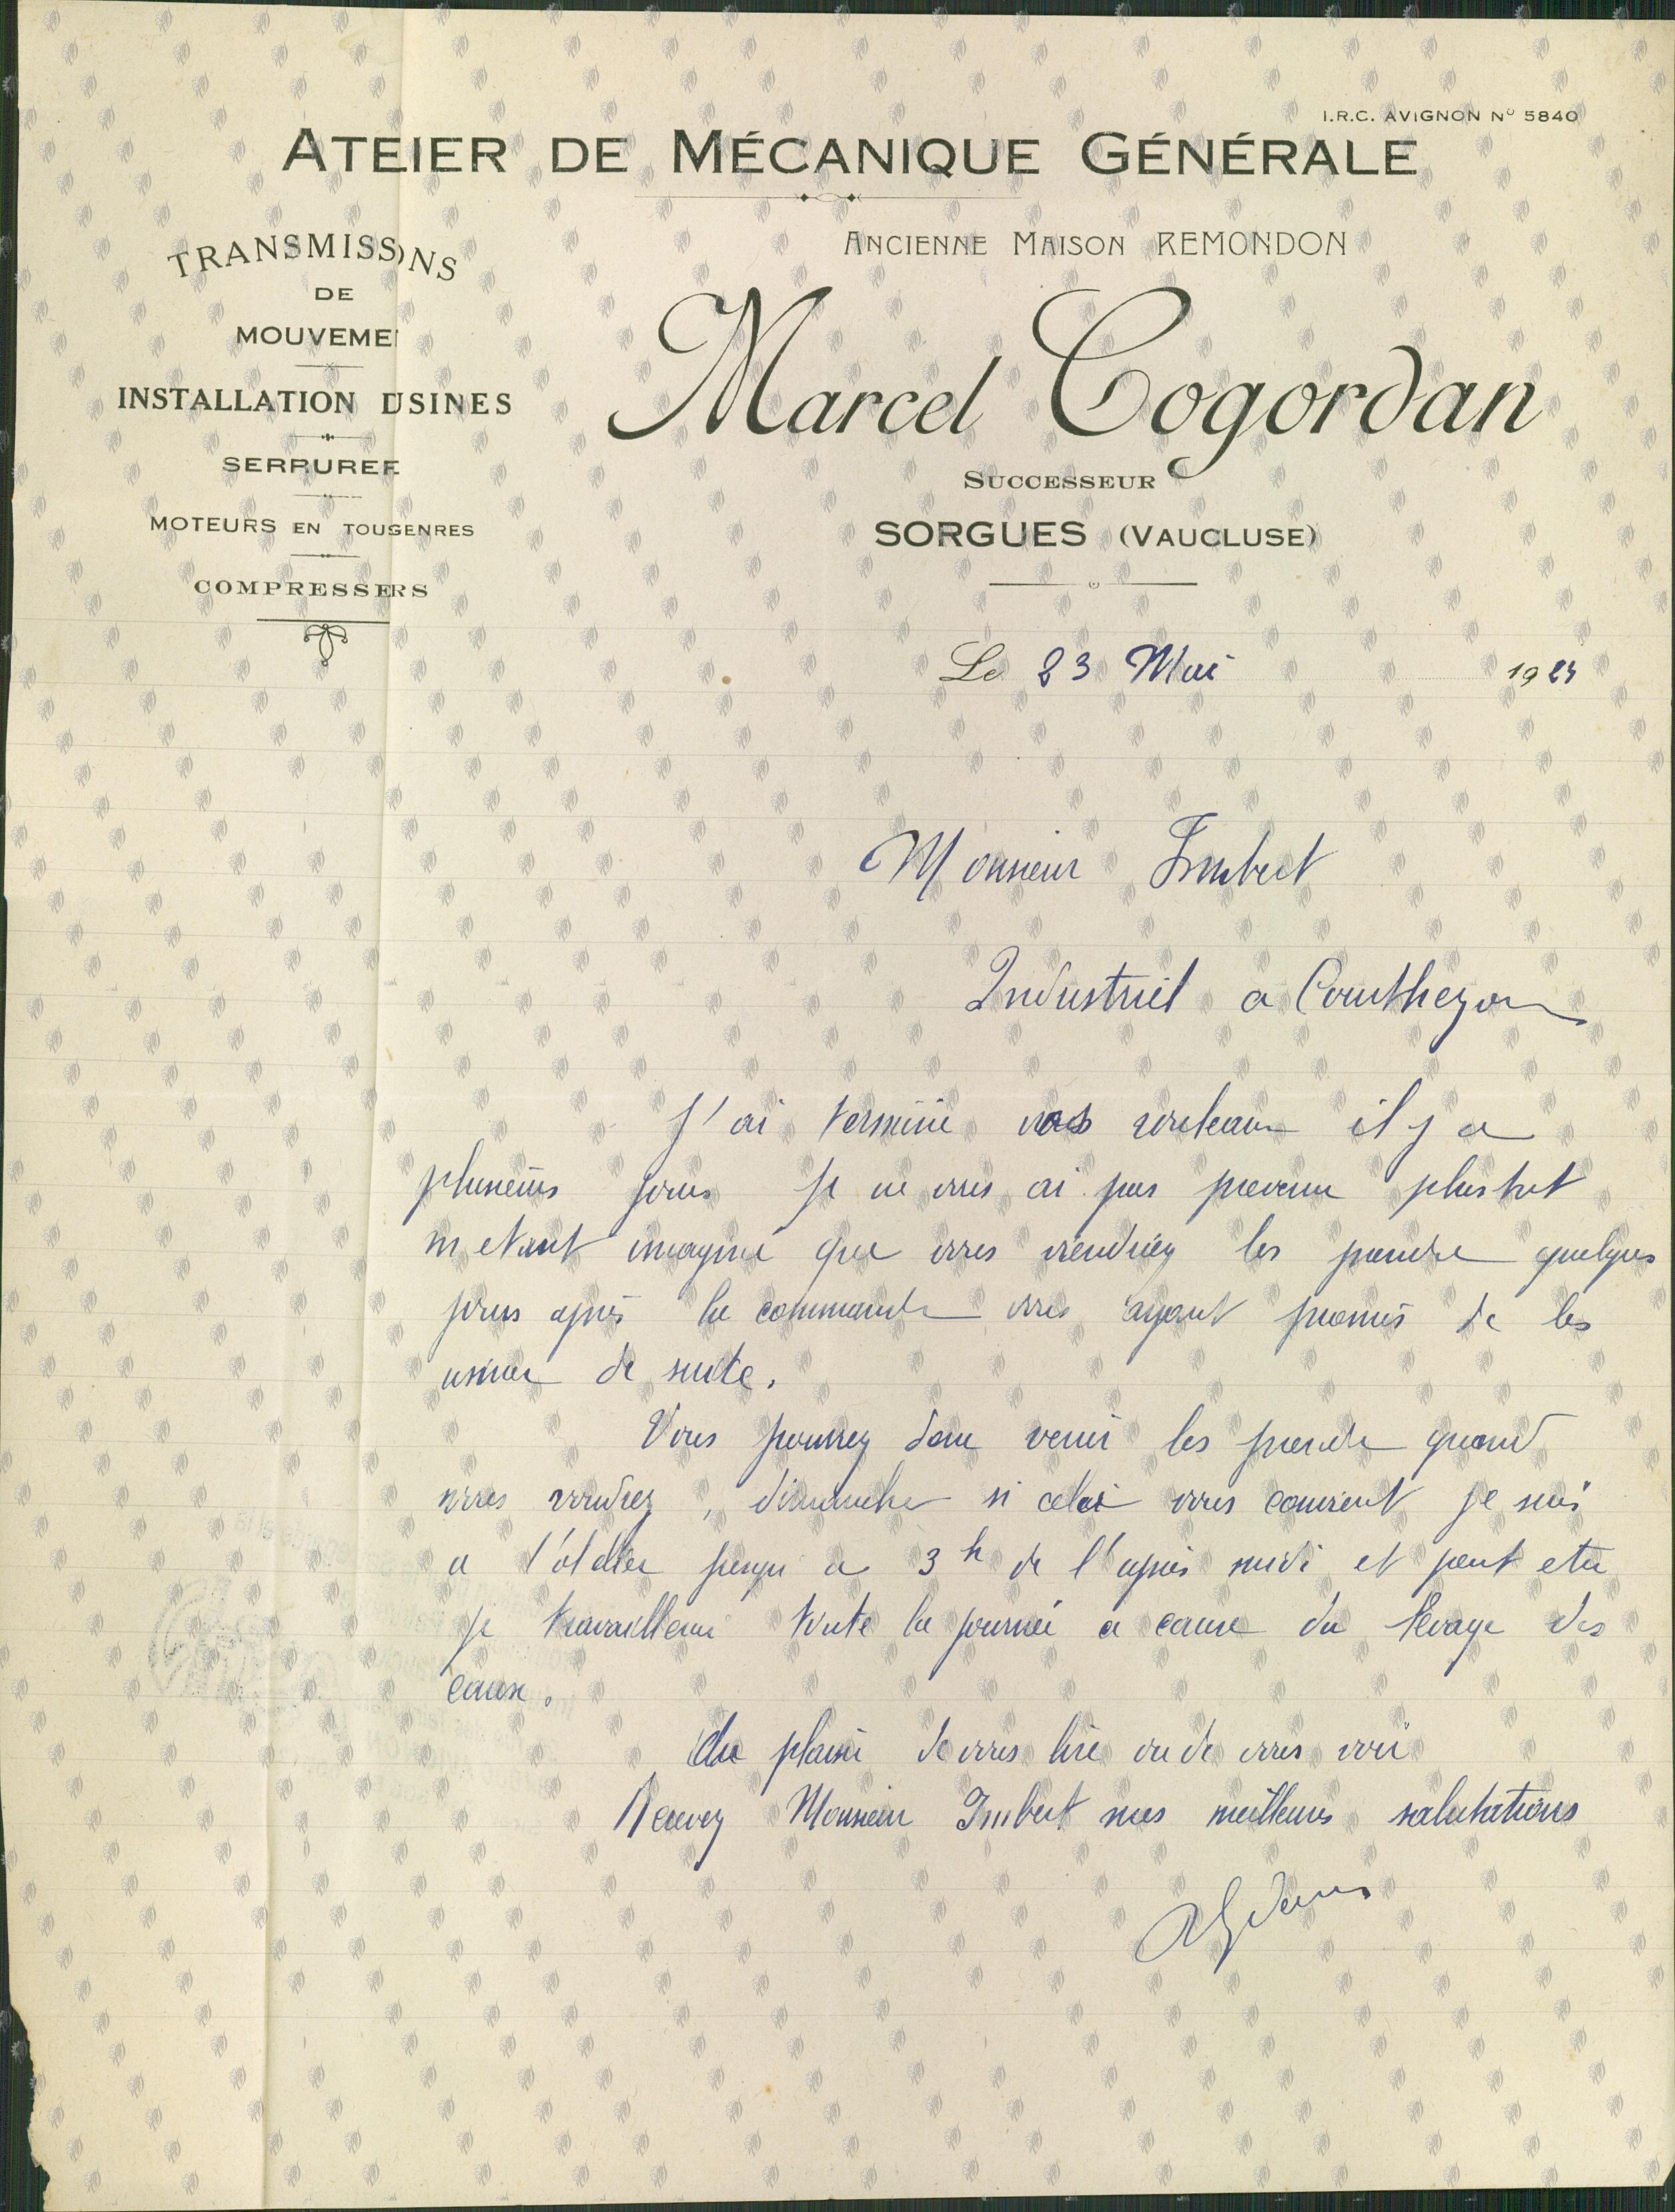 I.R.C. AVIGNON N° 5840
ATEIER DE MÉCANIQUE GÉNÉRALE
TRANSMISSONS
DE
MOUVEME
INSTALLATION USINES
SERRURER
MOTEURS EN TOUSENRES
COMPRESSERS
ANCIENNE MAISON REMONDON
Marcel Cogordan
SUCCESSEUR
SORGUES (VAUCLUSE)
Le 23 Mai 19
Monsieur Imbert
Industriel a Courthezon
J'ai terminé vos rouleaux il y a
plusieurs jours je ne vous ai pas prevenu plus tot
m etant imaginé que vous viendriez les prendre quelques
jours après la commande vous ayant promis de les
usiner de suite.
Vous pourrez donc venir les prendre quand
vous voudrez, dimanche si cela vous convient je suis
a l'atelier jusqu a 3 h de l'après midi et peut etre
je travaillerai toute la journée a cause du levage des
eaux.
du plaisir de vous lire ou de vous voir
Recevez Monsieur Imbert mes meilleures salutations